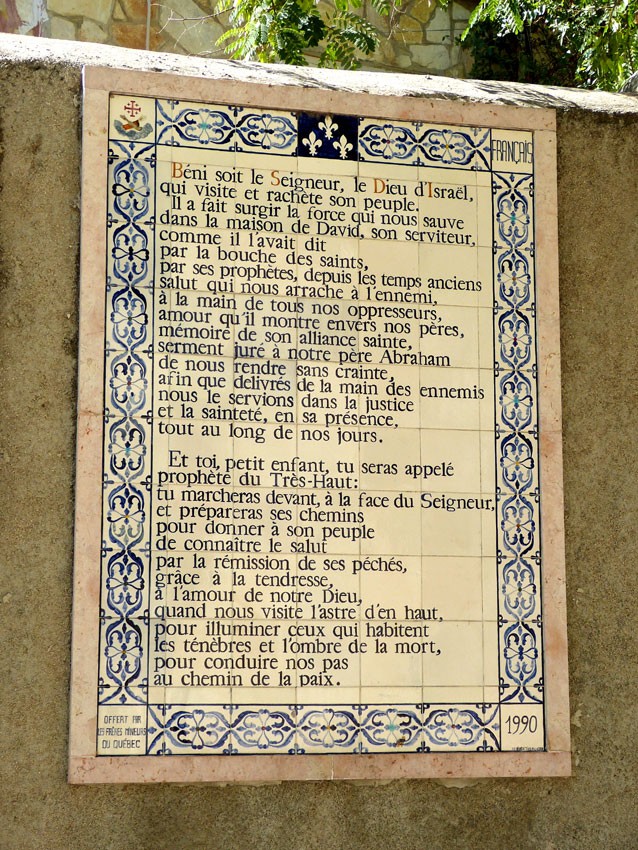 FRANÇAIS
Béni soit le Seigneur, le Dieu d'Israël,
qui visite et rachète son peuple.
Il a fait surgir la force qui nous sauve
dans la maison de David, son serviteur,
comme il l'avait dit
par la bouche des saints,
par ses prophètes, depuis les temps anciens
salut qui nous arrache à l'ennemi,
à la main de tous nos oppresseurs,
amour qu'il montre envers nos pères,
mémoire de son alliance sainte,
serment juré à notre père Abraham
de nous rendre sans crainte,
afin que delivrés de la main des ennemis
nous le servions dans la justice
et la sainteté, en sa présence,
tout au long de nos jours.
Et toi, petit enfant, tu seras appelé
prophète du Très-Haut:
tu marcheras devant, à la face du Seigneur,
et prépareras ses chemins
pour donner à son peuple
de connaître le salut
par la rémission de ses péchés,
grâce à la tendresse,
à l'amour de notre Dieu,
quand nous visite l'astre d'en haut,
pour illuminer ceux qui habitent
les ténèbres et l'ombre de la mort,
pour conduire nos pas
au chemin de la paix.
OFFERT PAR
LES FRÈRES MINEURS
DU QUÉBEC
1990